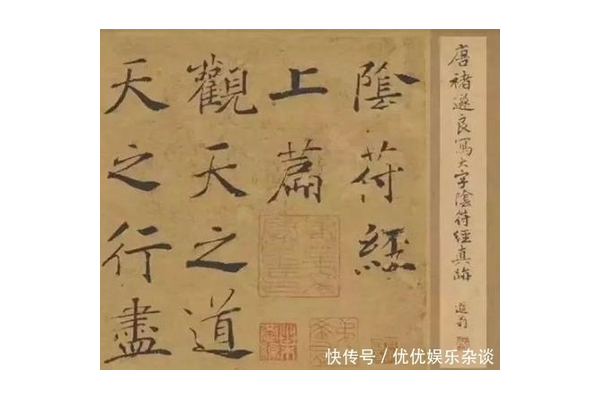 唐褚遂良寫大字陰符經真跡
遐翁
陰符經
上篇
觀天之道
天之行盡
快传号 / 优优娱乐杂谈